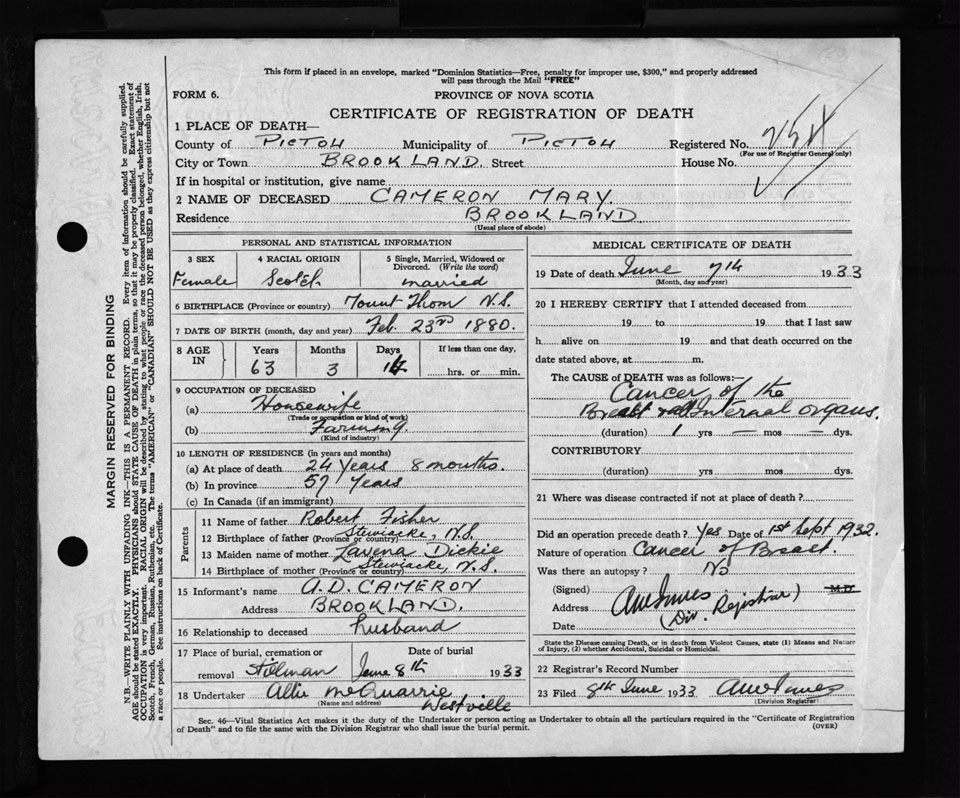 This form if placed in an envelope, marked "Dominion Statistics—Free, penalty for improper use, $300," and properly addressed
will pass through the Mail "FREE"
FORM 6.
PROVINCE OF NOVA SCOTIA
CERTIFICATE OF REGISTRATION OF DEATH
1 PLACE OF DEATH—
County of PICTOU Municipality of PICTOU Registered No. 254
(For use of Registrar General only)
City or Town BROOKLAND. Street House No.
If in hospital or institution, give name
2 NAME OF DECEASED CAMERON MARY.
Residence BROOKLAND
(Usual place of abode)
PERSONAL AND STATISTICAL INFORMATION
3 SEX 4 RACIAL ORIGIN 5 Single, Married, Widowed or
Divorced. (Write the word)
Female Scotch married
6 BIRTHPLACE (Province or country) Mount Thom N.S.
7 DATE OF BIRTH (month, day and year) Feb. 23rd 1880.
8 AGE IN Years Months Days If less than one day,
63 3 hrs. or min.
9 OCCUPATION OF DECEASED
(a) Housewife
(Trade or occupation or kind of work)
(b) Farming.
(Kind of industry)
10 LENGTH OF RESIDENCE (in years and months)
(a) At place of death 24 Years 8 months.
(b) In province 57 Years
(c) In Canada (if an immigrant)
Parents
11 Name of father Robert Fisher
12 Birthplace of father (Province or country) Stewiacke, N.S.
13 Maiden name of mother Lavena Dickie
14 Birthplace of mother (Province or country) Stewiacke, N.S.
15 Informant's name A.D. CAMERON
Address BROOKLAND.
16 Relationship to deceased husband
17 Place of burial, cremation or Date of burial
removal June 8th 1933
18 Undertaker Allie McQuarrie,
(Name and address) Westville
MEDICAL CERTIFICATE OF DEATH
19 Date of death June 7th 1933
(Month, day and year)
20 I HEREBY CERTIFY that I attended deceased from
19 to 19 that I last saw
h alive on 19 and that death occurred on the
date stated above, at m.
The CAUSE of DEATH was as follows:—
Cancer of the
Breast and Internal organs.
(duration) 1 yrs — mos — dys.
CONTRIBUTORY
(duration) yrs mos dys.
21 Where was disease contracted if not at place of death?
Did an operation precede death? Yes Date of 1st Sept 1932.
Nature of operation Cancer of Breast.
Was there an autopsy? No
(Signed) MD
Address (Div. Rejistrar)
Date
State the Disease causing Death, or in Death from Violent Causes, state (1) Means and Nature
of Injury, (2) whether Accidental, Suicidal or Homicidal.
22 Registrar's Record Number
23 Filed 8th June 1933
(Division Registrar)
Sec. 46—Vital Statistics Act makes it the duty of the Undertaker or person acting as Undertaker to obtain all the particulars required in the "Certificate of Registration
of Death" and to file the same with the Division Registrar who shall issue the burial permit.
(OVER)
MARGIN RESERVED FOR BINDING
N.B.—WRITE PLAINLY WITH UNFADING INK—THIS IS A PERMANENT RECORD. Every item of information should be carefully supplied.
AGE should be stated EXACTLY. PHYSICIANS should STATE CAUSE OF DEATH in plain terms, so that it may be properly classified. Exact statement of
OCCUPATION is very important. RACIAL ORIGIN will be described by stating to what people or race the deceased person belonged, whether English, Irish,
Scotch, French, German, Russian, Ruthenian, etc. The terms "AMERICAN" or "CANADIAN" SHOULD NOT BE USED as they express citizenship but not
a race or people. See instructions on back of Certificate.